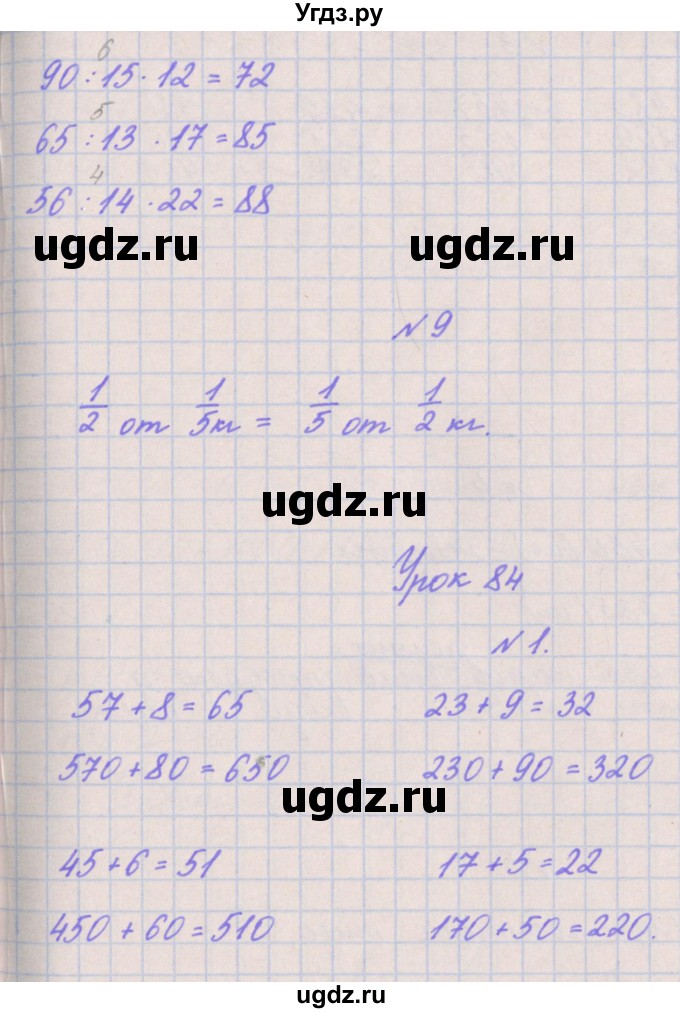 Угдз.ру
6
90 : 15 · 12 = 72
5
65 : 13 · 17 = 85
4
56 : 14 · 22 = 88
ugdz.ru ugdz.ru
№ 9
1/2 от 1/5 кг = 1/5 от 1/2 кг.
ugdz.ru
Урок 84
№ 1.
57 + 8 = 65 23 + 9 = 32
570 + 80 = 650 230 + 90 = 320
ugdz.ru
45 + 6 = 51 17 + 5 = 22
450 + 60 = 510 170 + 50 = 220.
ugdz.ru